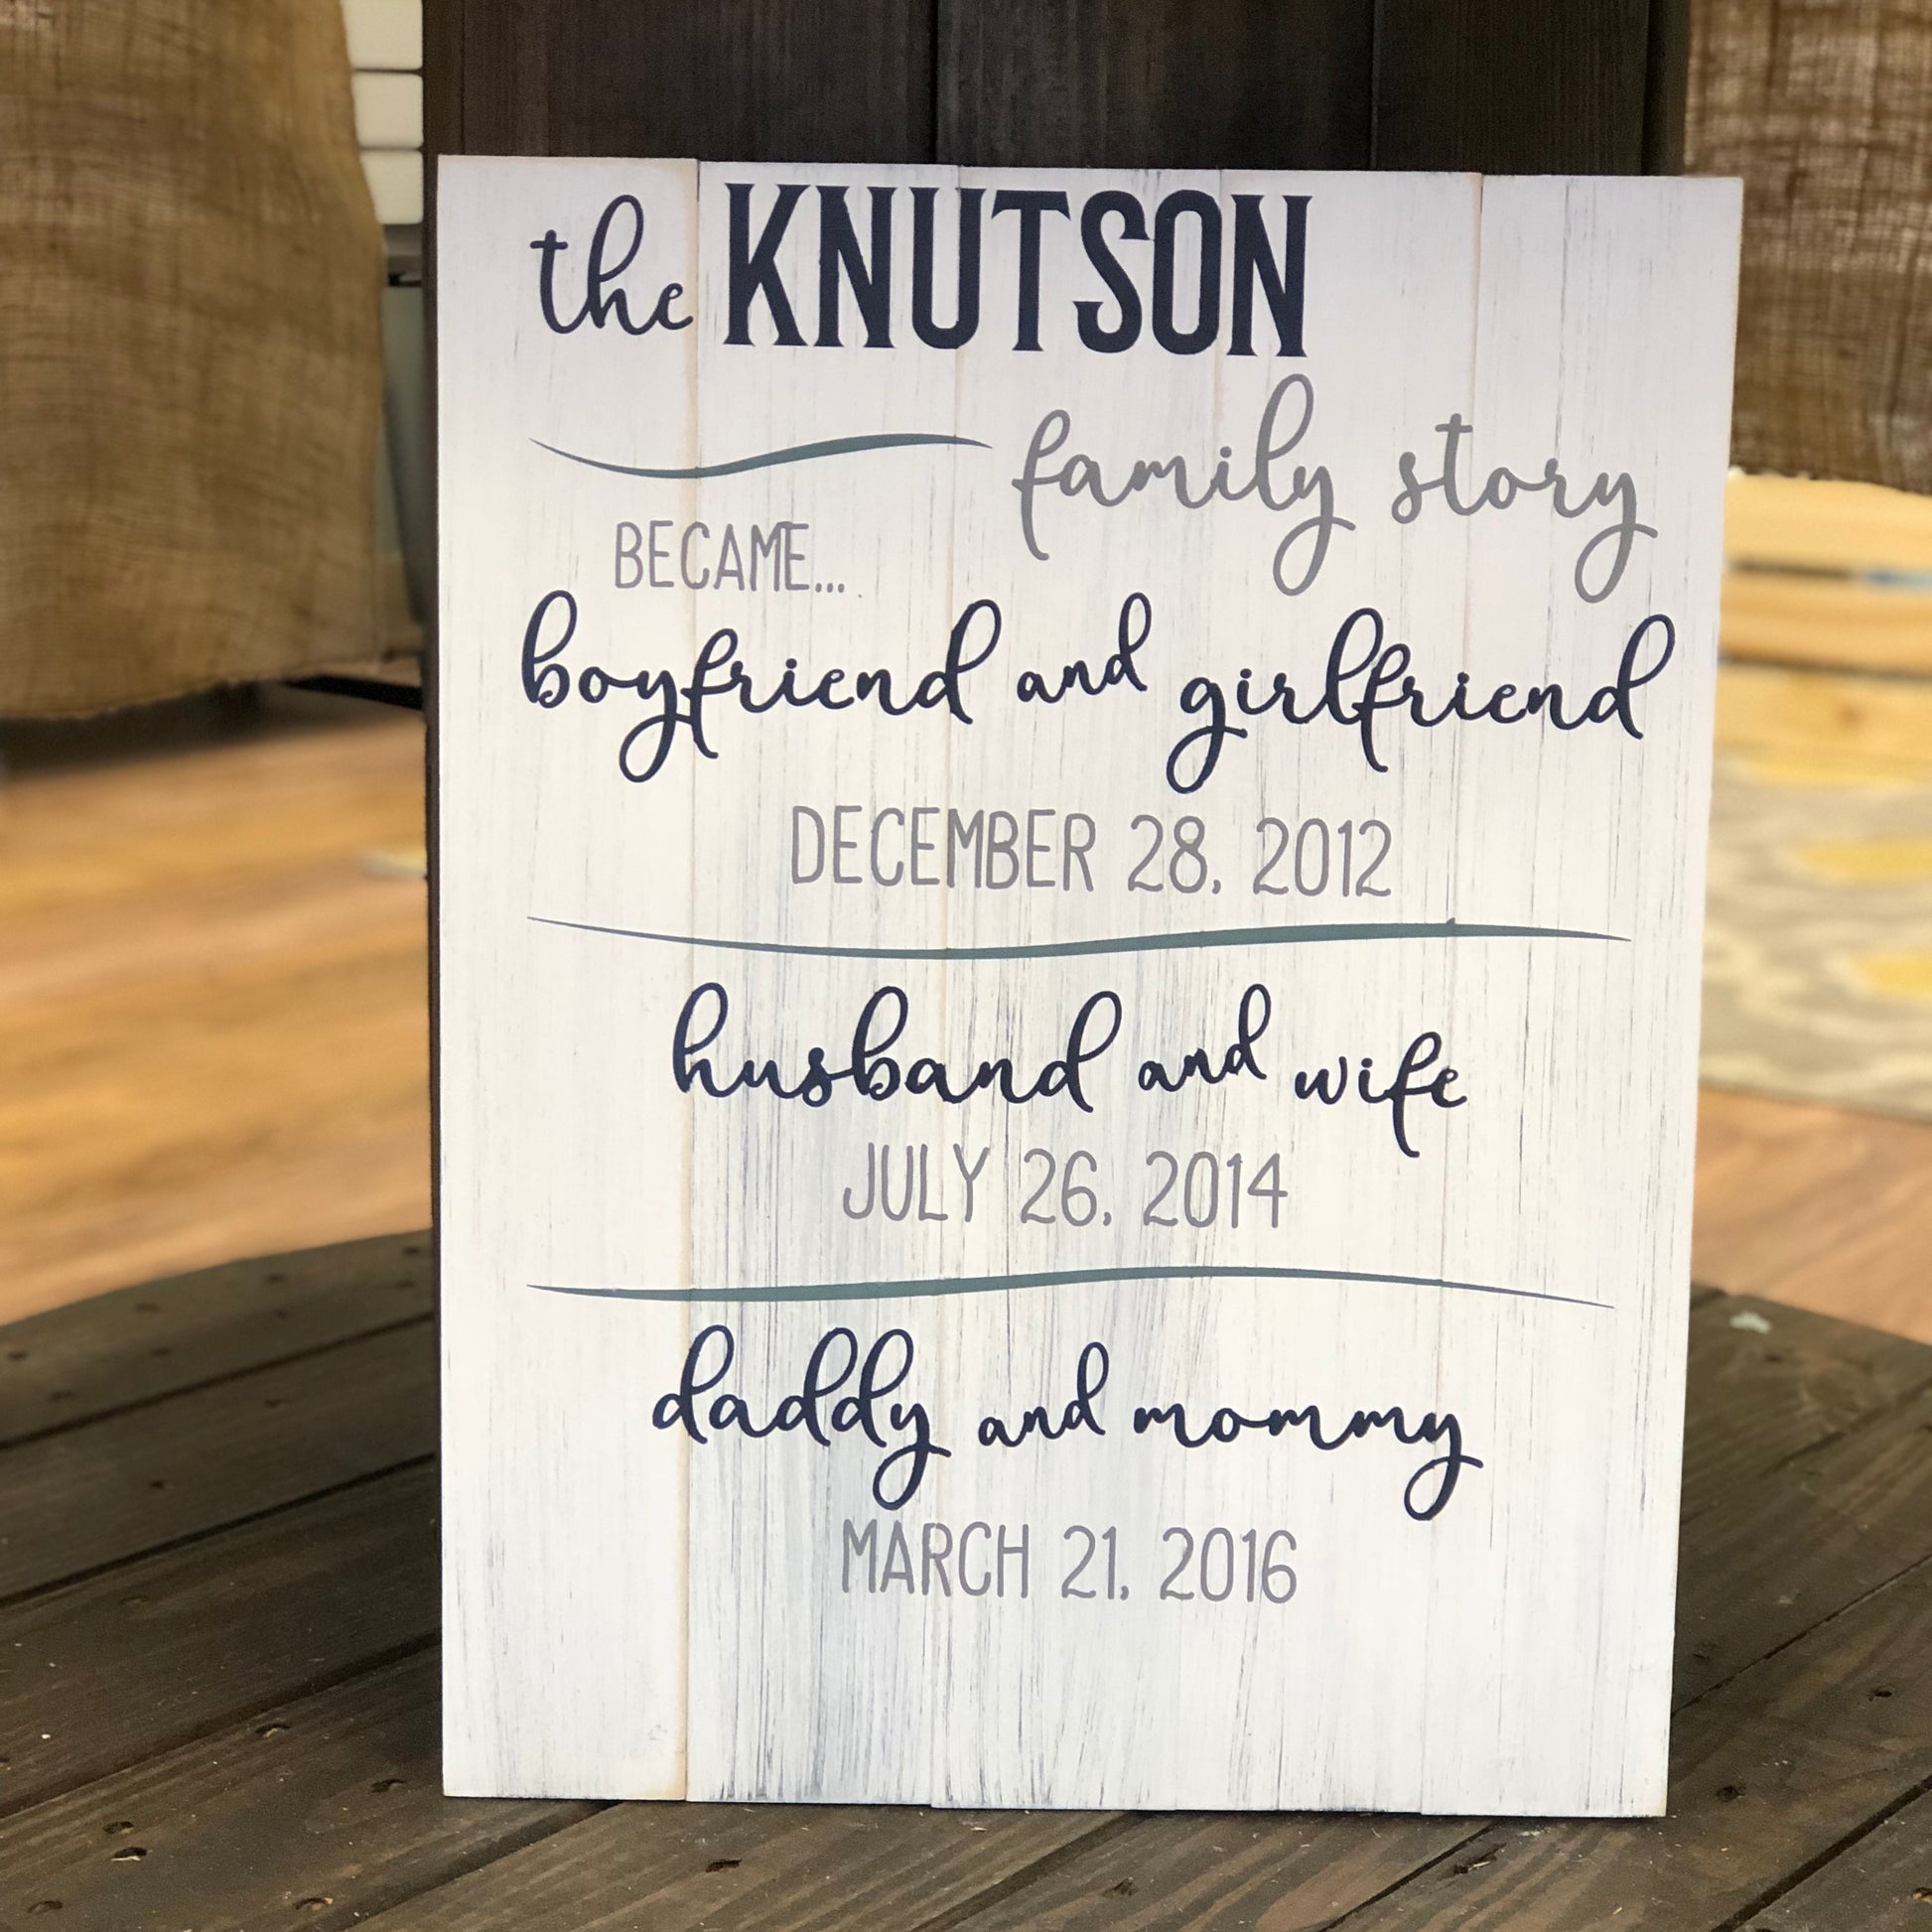 the KNUTSON
family story
BECAME...
boyfriend and girlfriend
DECEMBER 28, 2012
husband and wife
JULY 26, 2014
daddy and mommy
MARCH 21, 2016